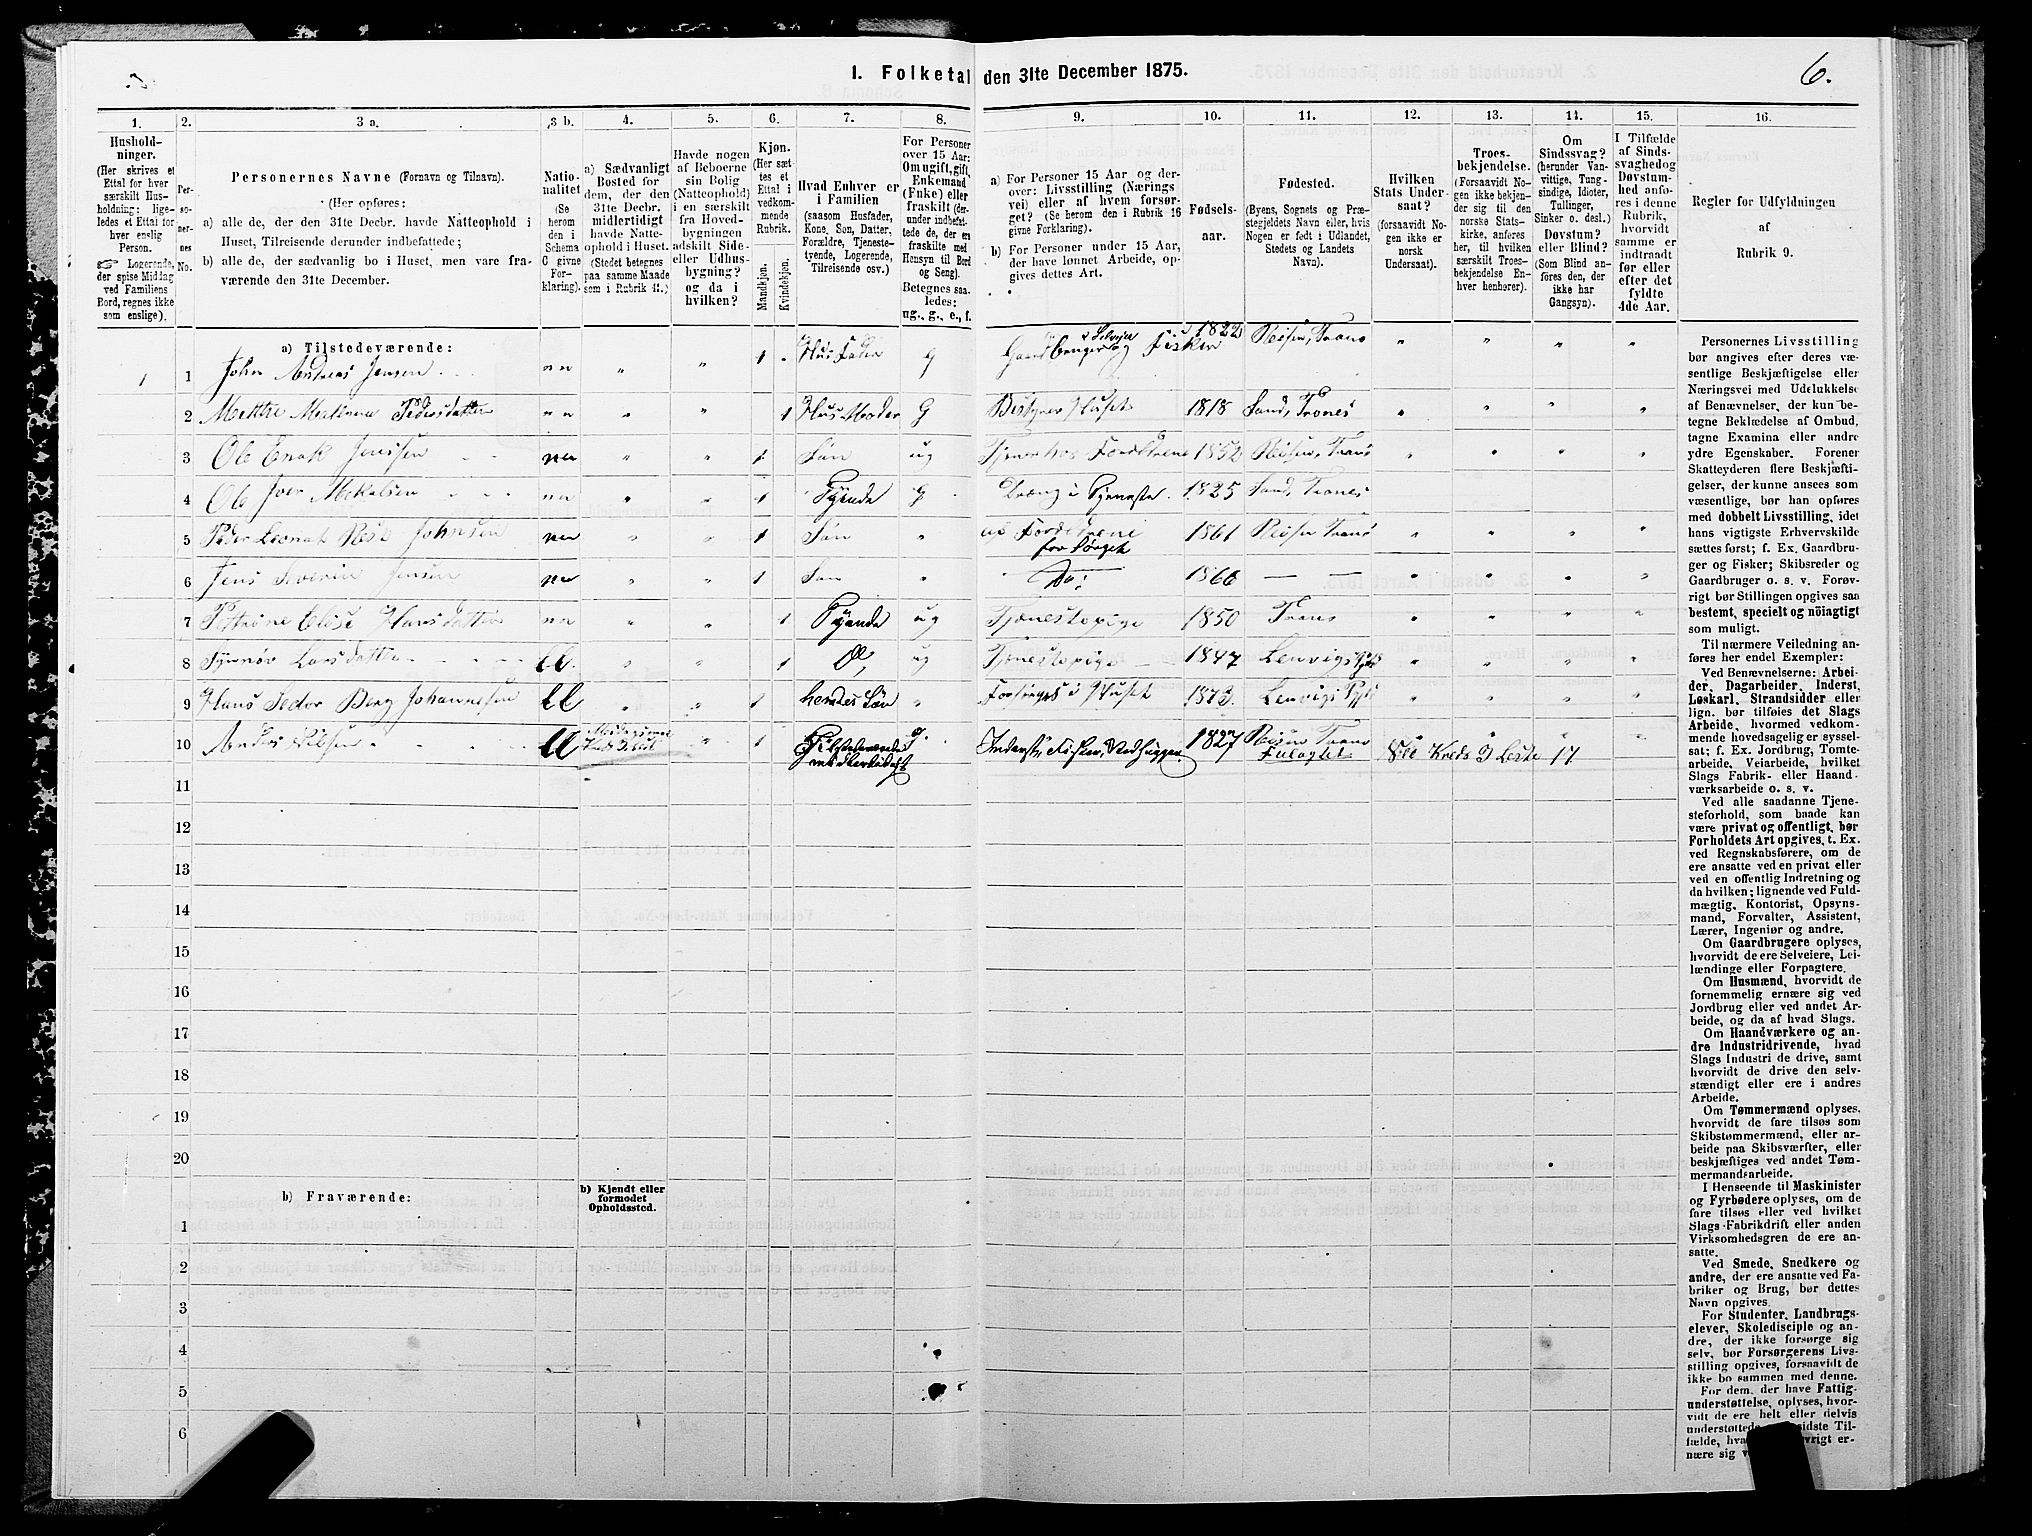 I. Folketal den 31te December 1875.
6.
1.
Hushold-
ninger.
(Her skrives et
Ettal for hver
særskilt Hus-
holdning; lige-
ledes et Ettal for
hver enslig
Person.
☞ Logerende,
der spise Middag
ved Familiens
Bord, regnes ikke
som enslige).
2.
Per-
so-
ner-
nes
No.
3 a.
Personernes Navne (Fornavn og Tilnavn).
(Her opføres:
a) alle de, der den 31te Decbr. havde Natteophold i
Huset, Tilreisende derunder indbefattede;
b) alle de, der sædvanlig bo i Huset, men vare fra-
værende den 31te December.
3 b.
Natio-
nalitet
(Se
herom
den i
Schema
C givne
For-
klaring).
4.
a) Sædvanligt
Bosted for
dem, der den
31te Decbr.
midlertidigt
havde Natte-
ophold i Huset.
(Stedet betegnes
paa samme Maade
som i Rubrik 11.)
5.
Havde nogen
af Beboerne
sin Bolig
(Natteophold)
i en særskilt
fra Hoved-
bygningen
adskilt Side-
eller Udhus-
bygning?
og da i
hvilken?
6.
Kjøn.
(Her sæt-
tes et
Ettal i
vedkom-
mende
Rubrik.
Mandkjøn.
Kvindekjøn.
7.
Hvad Enhver er
i Familien
(saasom Husfader,
Kone, Søn, Datter,
Forældre, Tjeneste-
tyende, Logerende,
Tilreisende osv.)
8.
For Personer
over 15 Aar:
Om ugift, gift,
Enkemand
(Enke) eller
fraskilt (der-
under indbefat-
tede de, der ere
fraskilte med
Hensyn til Bord
og Seng).
Betegnes saa-
ledes:
ug., g., e., f.
9.
a) For Personer 15 Aar og der-
over: Livsstilling (Nærings
vei) eller af hvem forsør-
get? (Se herom den i Rubrik 16
givne Forklaring).
b) For Personer under 15 Aar,
der have lønnet Arbeide, op-
gives dettes Art.
10.
Fødsels-
aar.
11.
Fødested.
(Byens, Sognets og Præ-
stegjeldets Navn eller, hvis
Nogen er født i Udlandet,
Stedets og Landets
Navn).
12.
Hvilken
Stats Under-
saat?
(forsaavidt No-
gen ikke er
norsk
Undersaat).
13.
Troes-
bekjendelse.
(Forsaavidt No-
gen ikke bekjen-
der sig til den
norske Stats-
kirke, anføres
her, til hvilken
særskilt Troes-
bekjendelse En-
hver henhører).
14.
Om
Sindssvag?
(herunder Van-
vittige, Tung-
sindige, Idioter,
Tullinger,
Sinker o. desl.)
Døvstum?
eller Blind?
(Som Blind an-
føres den, der
ikke har
Gangsyn).
15.
I Tilfælde
af Sinds-
svaghed og
Døvstum-
hed anfø-
res i denne
Rubrik,
hvorvidt
samme er
indtraadt
før eller
efter det
fyldte
4de Aar.
16.
Regler for Udfyldningen
af
Rubrik 9.
a) Tilstedeværende:
1 1 John Andreas Jensen nn " " 1 Hus Fader G Gaardbruger og Fisker Selveier 1822 Reisen, Troms " " " "
2 nn " " 1 Hus Moder G Bestyrer Huset 1818 Sand, Tromsø " " " "
3 Ole Enok Jensen nn " " 1 Søn ug Tjener hos Forældrene 1852 Reisen, Troms " " " "
4 Ole Iver Mikalsen nn " " 1 Tyende g Dreng i Tjeneste 1825 Sand, Tromsø " " " "
5 Peder Johnsen nn " " 1 Søn " af Forældrene 1861 Reisen Troms " " " "
forsørget
6 Jens Severin Jensen nn " " 1 Søn " Do: 1866 — — " " " "
7 Hansdatter nn " " 1 Tyende ug Tjenestepige 1850 Troms " " " "
8 Larsdatter " " 1 ug Tjenestepige 1847 Lenvigs " " " "
9 Hans Berg Johannesen " " 1 hendes Søn " Forsørges i Huset 1873 Lenvigs " " " "
10 Anders Nilsen " 1 g. Fisker 1827 Reisen Troms " " " "
Kreds Liste 17
11
12
13
14
15
16
17
18
19
20
b) Fraværende:
b) Kjendt eller
formodet
Opholdssted.
1
2
3
4
5
6
Personernes Livsstilling
bør angives efter deres væ-
sentlige Beskjæftigelse eller
Næringsvei med Udelukkelse
af Benævnelser, der kun be-
tegne Beklædelse af Ombud,
tagne Examina eller andre
ydre Egenskaber. Forener
Skatteyderen flere Beskjæfti-
gelser, der kunne ansees som
væsentlige, bør han opføres
med dobbelt Livsstilling, idet
hans vigtigste Erhvervskilde
sættes først; f. Ex. Gaardbru-
ger og Fisker; Skibsreder og
Gaardbruger o. s. v. Forøv-
rigt bør Stillingen opgives saa
bestemt, specielt og nöiagtigt
som muligt.
Til nærmere Veiledning an-
føres her endel Exempler:
Ved Benævnelserne: Arbei-
der, Dagarbeider, Inderst,
Løskarl, Strandsidder eller
lign. bør tilføies det Slags
Arbeide, hvormed vedkom-
mende hovedsagelig er syssel-
sat; f. Ex. Jordbrug, Tomte-
arbeide, Veiarbeide, hvilket
Slags Fabrik- eller Haand-
værksarbeide o. s. v.
Ved alle saadanne Tjene-
steforhold, som baade kan
være privat og offentligt, bør
Forholdets Art opgives, t. Ex.
ved Regnskabsførere, om de
ere ansatte ved en privat eller
ved en offentlig Indretning og
da hvilken; lignende ved Fuld-
mægtig, Kontorist, Opsyns-
mand, Forvalter, Assistent,
Lærer, Ingeniør og andre.
Om Gaardbrugere oplyses,
hvorvidt de ere Selveiere, Lei-
lændinge eller Forpagtere.
Om Husmænd, hvorvidt de
fornemmelig ernære sig ved
Jordbrug eller ved andet Ar-
beide, og da af hvad Slags.
Om Haandværkere og an-
dre Industridrivende, hvad
Slags Industri de drive, samt
hvorvidt de drive den selv-
stændigt eller ere i andres
Arbeide.
Om Tømmermænd oplyses,
hvorvidt de fare tilsøs som
Skibstømmermænd, eller ar-
beide paa Skibsværfter, eller
beskjæftiges ved andet Tøm-
mermandsarbeide.
I Henseende til Maskinister
og Fyrbødere oplyses, om de
fare tilsøs eller ved hvilket
Slags Fabrikdrift eller anden
Virksomhedsgren de ere an-
satte.
Ved Smede, Snedkere og
andre, der ere ansatte ved Fa-
briker og Brug, bør dettes
Navn opgives.
For Studenter, Landbrugs-
elever, Skoledisciple og an-
dre, der ikke forsørge sig
selv, bør Forsørgerens Livs-
stilling opgives, forsaavidt de
ikke bo sammen med denne.
For dem, der have Fattig-
understøttelse, oplyses, hvor-
vidt de ere helt eller delvis